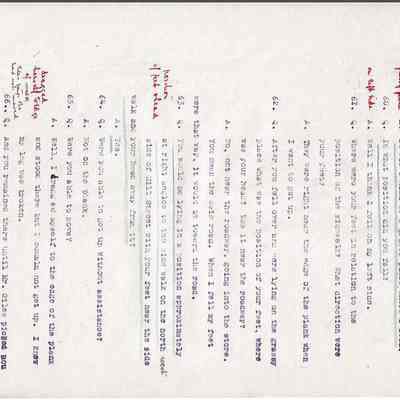 60. Q. In what position did you fall?
A. Well I think I fell on my left side.
on left side
61. Q. Where were your feet in relation to the
position of the sidewalk? What direction were
your feet?
A. They were right near the edge of the plank when
I went to get up.
62. Q. After you fell over and were lying on the grassy
place what was the position of your feet, where
was your head? Was it near the roadway?
A. No, not near the roadway, going into the store.
You mean the main road. When I fell my feet
were that way. It would be toward the road.
63. Q. You would be lying in a position approximately
at right angles to the side walk on the north
side of Mill Street with your feet near the side
walk and your head away from it?
position of feet & head
A. Yes.
64. Q. Were you able to get up without assistance?
A. Not on the plank.
65. Q. Were you able to move?
A. Well, I dragged myself to the edge of the plank
and stood there but I could not get up. I knew
my leg was broken.
dragged herself to edge of walk
66. Q. And you remained there until Mr. Giles picked you